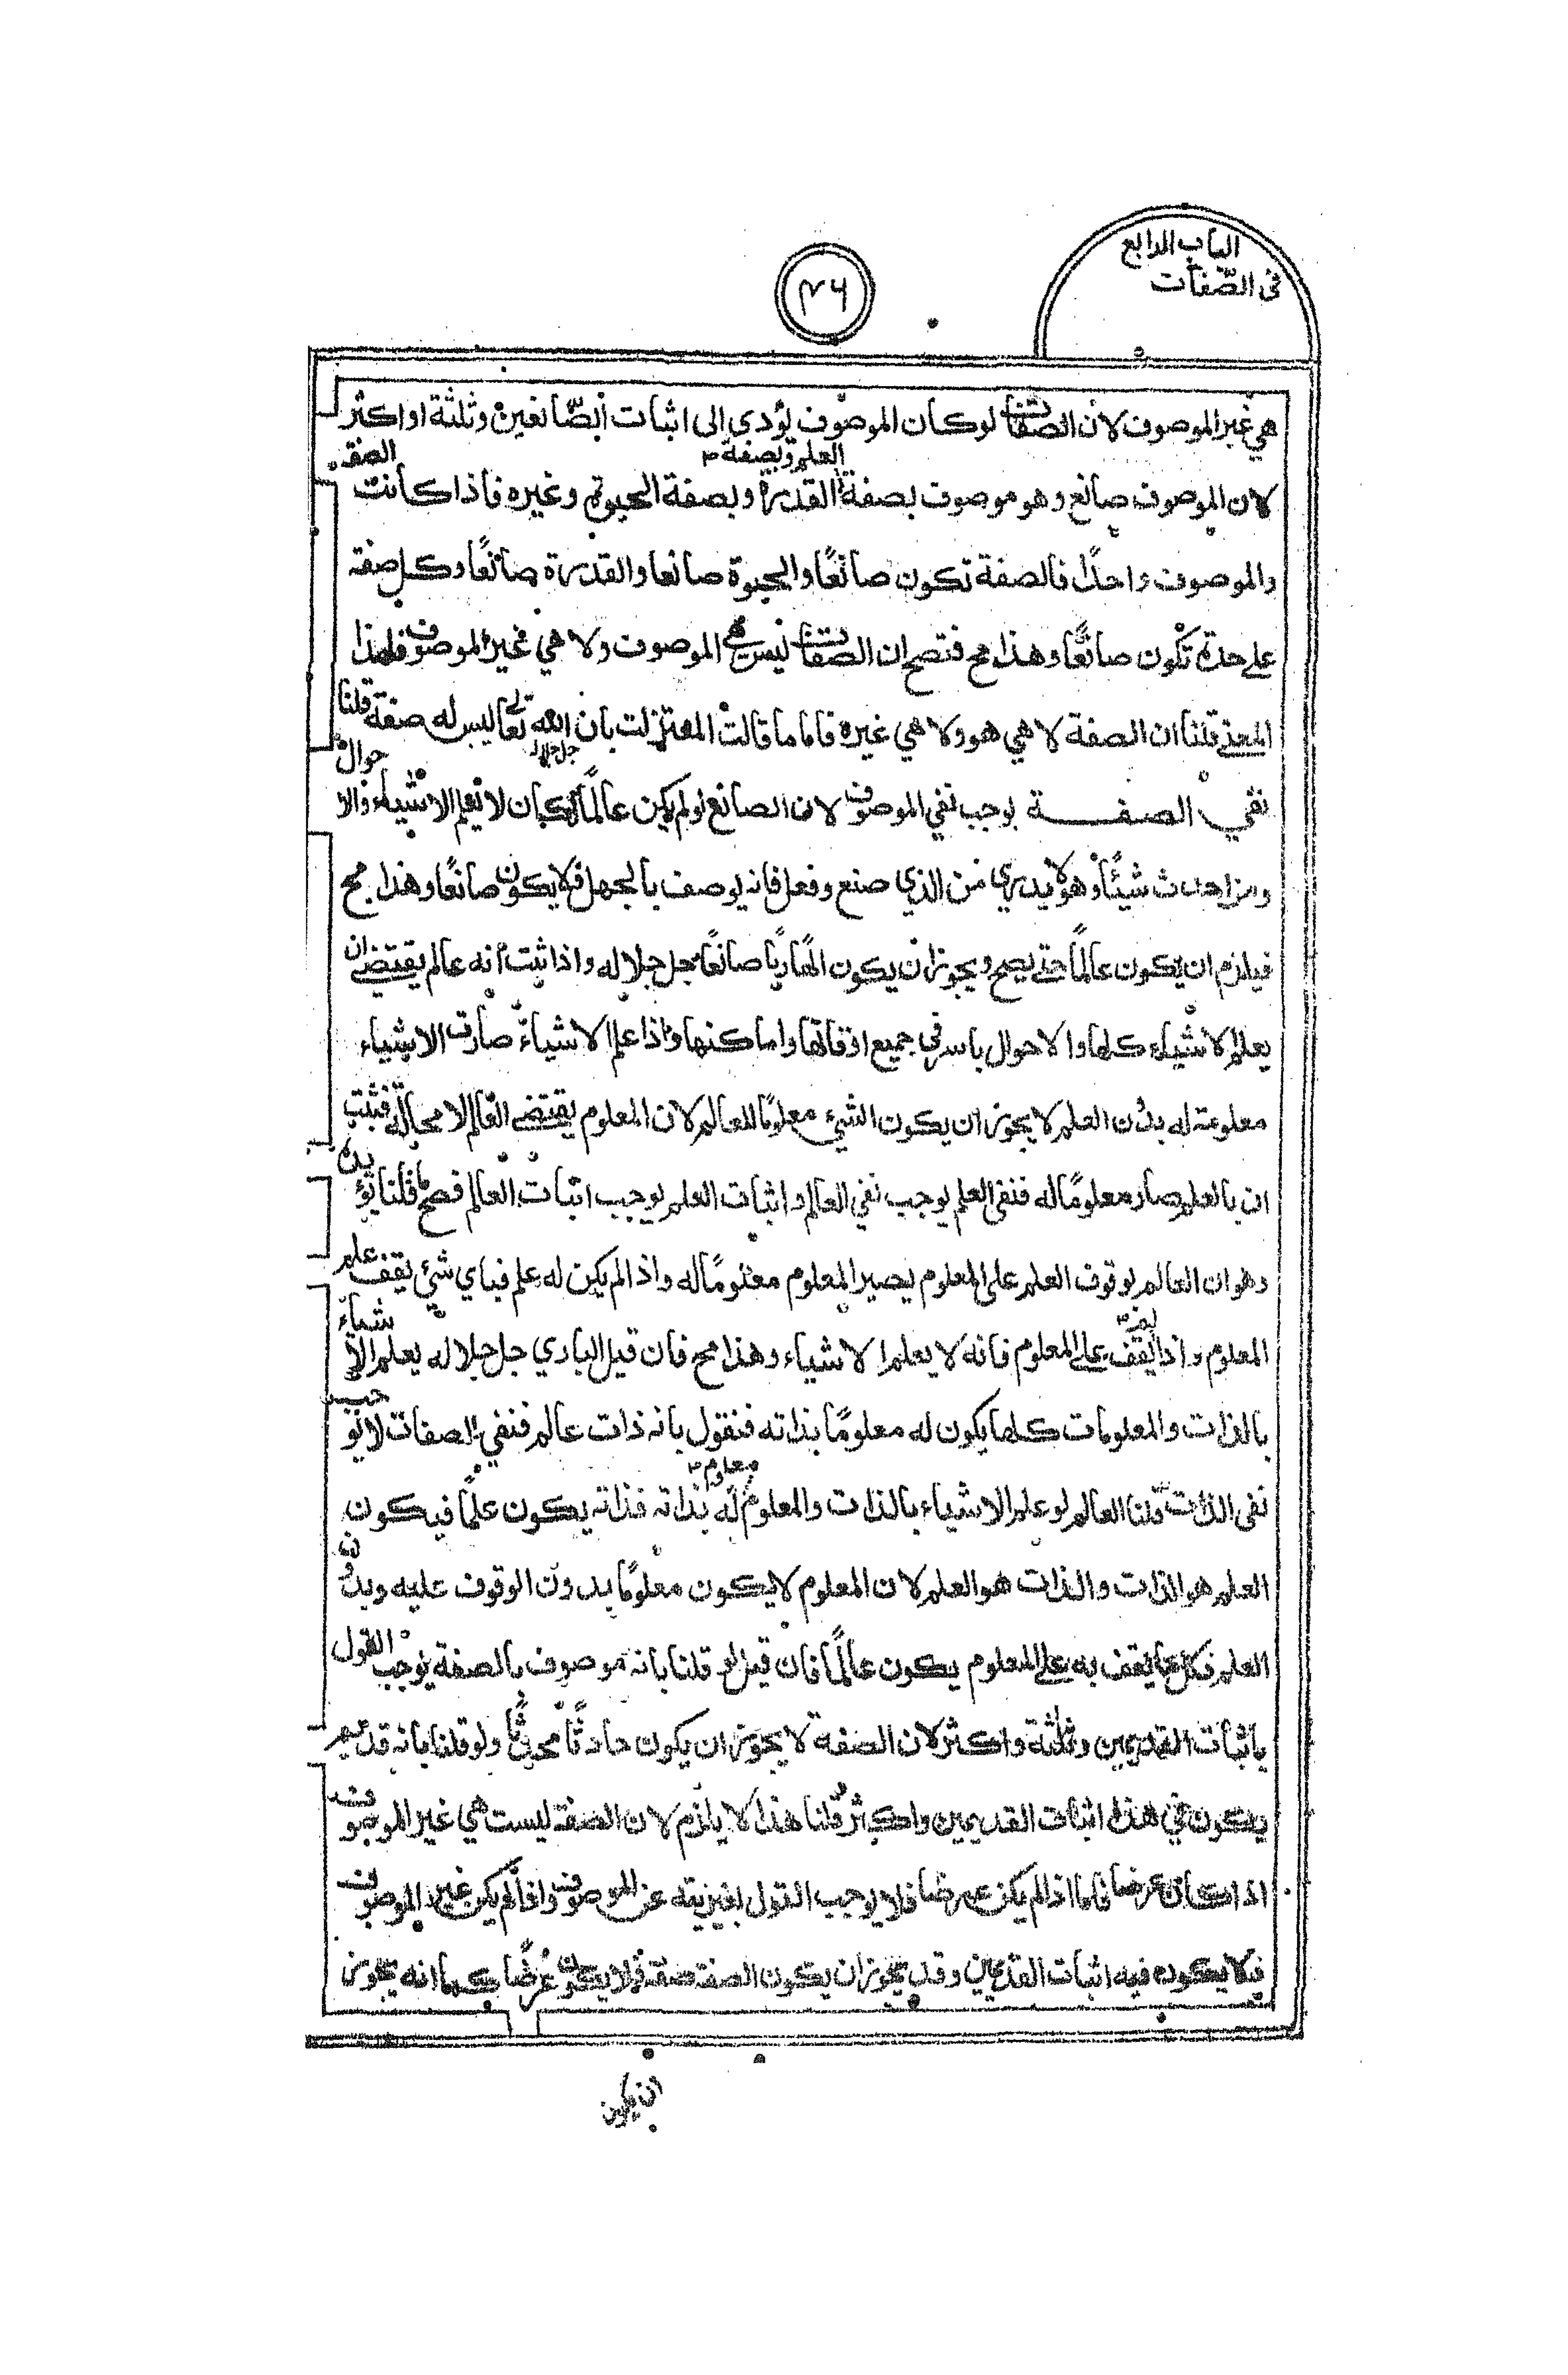 الباب الرابع
في الصّفات
٧٦
هي غير الموصوف لان الصفات لو كان الموصوف يؤدي الى اثبات الصّانعين وثلثة او اكثر
لان الموصوف صانع وهو موصوف بصفة العلم وبصفة القدرة وبصفة الحيوة وغيره فاذا كانت الصفة
والموصوف واحدًا فالصفة تكون صانعًا والحيوة صانعا والقدرة صانعًا وكل صفة
على حدة تكون صانعًا وهذا مح فتصح ان الصفات ليس هي الموصوف ولا هي غير الموصوف فلهذا
المعنى قلنا ان الصفة لا هي هو ولا هي غيره فاما ما قالت المعتزلت بان الله تعالى جل جلاله ليس له صفة قلنا
نفي الصفة يوجب نفي الموصوف لان الصانع لو لم يكن عالمًا لكان لا يعلم الاشياء والاحوال
ومن احدث شيئًا وهو لا يدري من الذي صنع وفعل فانه يوصف بالجهل فلا يكون صانعًا وهذا مح
فيلزم ان يكون عالمًا حتى يصح ويجوز ان يكون الهًا ربًا صانعًا جل جلاله واذا ثبت انه عالم يقتضي ان
يعلم الاشياء كلها والاحوال باسرها في جميع اوقاتها واماكنها واذا علم الاشياء صارت الاشياء
معلومة له بدون العلم لا يجوز ان يكون الشيء معلومًا للعالم لان المعلوم يقتضي العالم لا محالة فثبت
ان بالعلم صار معلومًا له فنفي العلم يوجب نفي العالم واثبات العلم يوجب اثبات العالم فصح ما قلنا يؤيده
وهو ان العالم بوقوف العلم على المعلوم يصير المعلوم معلومًا له واذا لم يكن له علم فباي شيء يقف علم
المعلوم واذا لم يقف على المعلوم فانه لا يعلم الاشياء وهذا مح فان قيل الباري جل جلاله يعلم الاشياء
بالذات والمعلومات كلها يكون له معلومًا بذاته فنقول بانه ذات عالم فنفي الصفات لا توجب
نفي الذات قلنا العالم لو علم الاشياء بالذات والمعلوم معلوم له بذاته فذاته يكون علمًا فيكون
العلم هو الذات والذات هو العلم لان المعلوم لا يكون معلومًا بدون الوقوف عليه وبدون
العلم فكل ما يقف به على المعلوم يكون عالمًا فان قيل لو قلنا بانه موصوف بالصفة يوجب القول
باثبات القديمين وثلثة واكثر لان الصفة لا يجوز ان يكون حادثًا محدثًا ولو قلنا بانه قديم
يكون في هذا اثبات القديمين واكثر قلنا هذا لا يلزم لان الصفة ليست هي غير الموصوف
اذا كان عرضا فاما اذا لم يكن عرضا فلا يوجب القول بغيريته عن الموصوف واذا لم يكن غير الموصوف
فلا يكون فيه اثبات القديمين وقد يجوز ان يكون الصفة صفة فلا يكون عرضًا كما انه يجوز
ان يكون